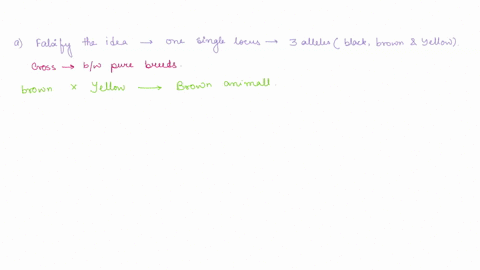 a) Falsify the idea → one single locus → 3 alleles (black, brown & yellow)
Cross → b/w pure breeds.
brown × Yellow → Brown animall.